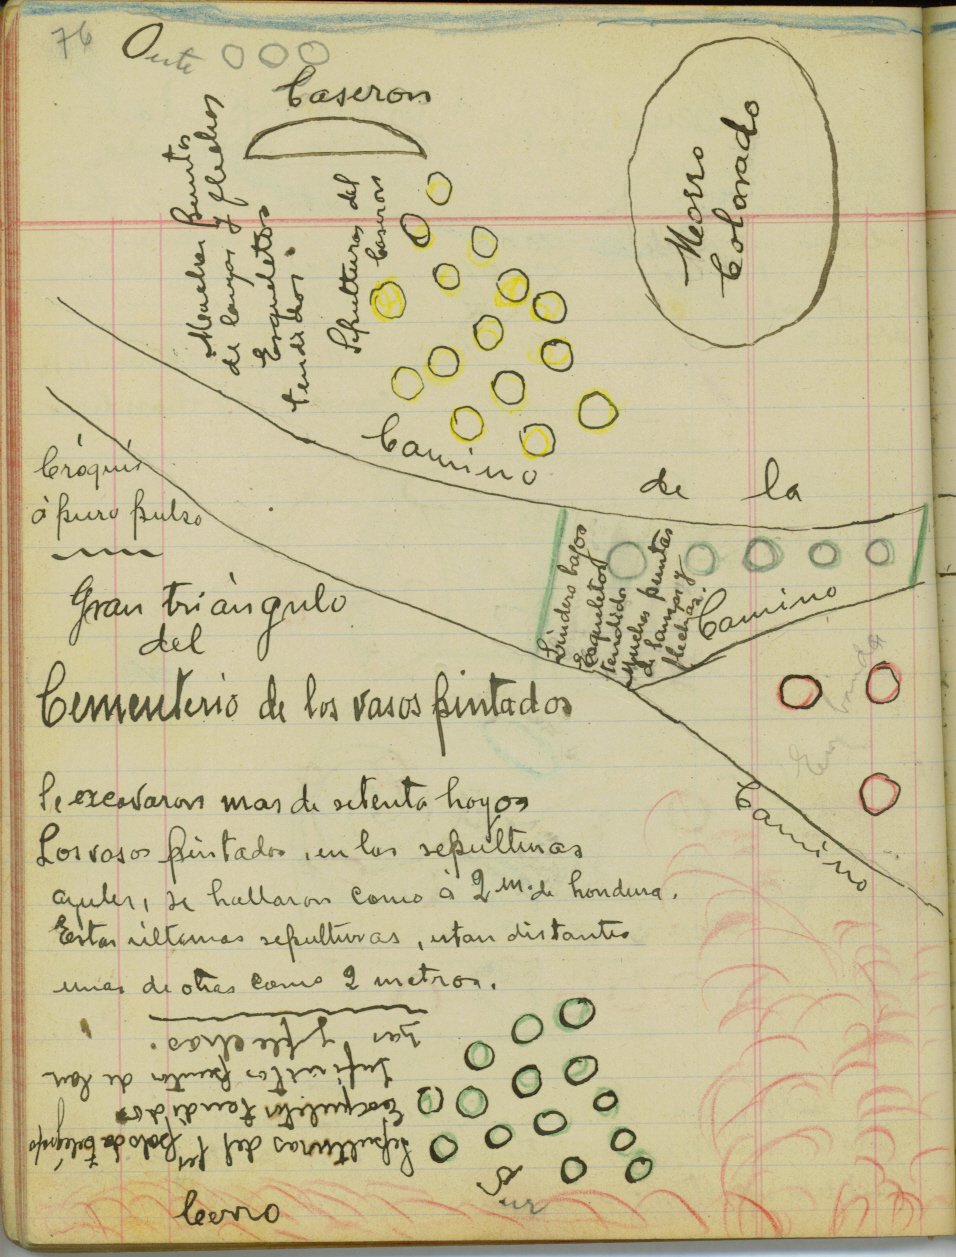 76 Oeste
Caseron
Muchas puntas
de lanzas y flechas
Esqueletos
tendidos.
Sepulturas del
Caseron
Morro
Colorado
Camino de la
Cróquis
á puro pulso
Gran triángulo
del
Cementerio de los vasos pintados
Lindero bajos
Esqueletos
tendidos
Muchas puntas
de lanzas y
flechas.
Camino
Camino
Se excavaron mas de setenta hoyos
Los vasos pintados, en las sepulturas
azules, se hallaron como á 2 m. de hondura.
Estas últimas sepulturas, estan distantes
unas de otras como 2 metros.
Sepulturas del 1er palo de telégrafo
Esqueletos tendidos
Infinitas puntas de lan
zas y flechas.
Sur
Cerro